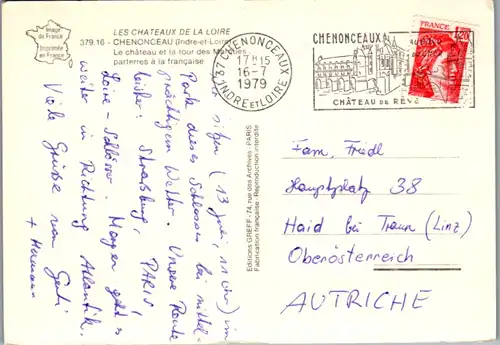 Image
de France
Imprimée
en France
LES CHATEAUX DE LA LOIRE
379.16 - CHENONCEAU (Indre-et-Loire)
Le château et la tour des Marques
parterres à la française
sitzen (13. Juli, 11 Uhr) im
Park dieses Schlosses bei mittel-
prächtigem Wetter. Unsere Route
bisher: Straßburg, PARIS,
Loire-Schlösser. Morgen geht's
weiter in Richtung Atlantik.
Viele Grüße von Gabi
+ Hermann
Editions GREFF - 74, rue des Archives - PARIS
Fabrication française - Reproduction interdite
37 CHENONCEAUX
17H15
16-7
1979
INDRE ET LOIRE
CHENONCEAUX
CHÂTEAU DE RÊVE
FRANCE
1,20
Fam. Friedl
Hauptplatz 38
Haid bei Traun (Linz)
Oberösterreich
AUTRICHE